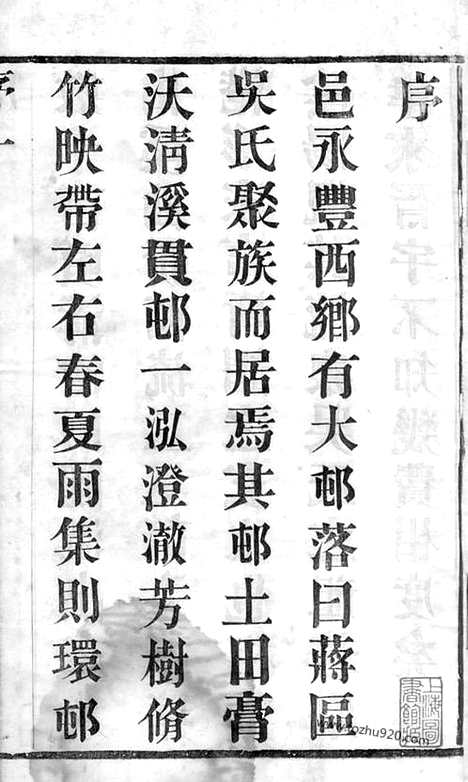 序
邑永豐西鄉有大邨落曰蔣區
吳氏聚族而居焉其邨土田膏
沃淸溪貫邨一泓澄澈芳樹脩
竹映帶左右春夏雨集則環邨
序 一
上海圖書館藏
www.kozhu920.com